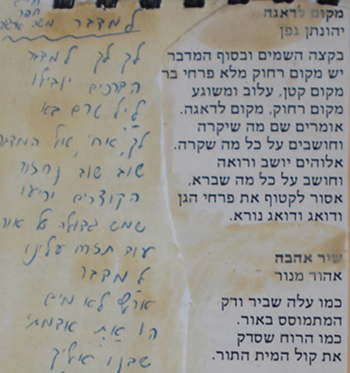 מקום לדאגה
יהונתן גפן
בקצה השמים ובסוף המדבר
יש מקום רחוק מלא פרחי בר
מקום קטן, עלוב ומשוגע
מקום רחוק, מקום לדאגה.
אומרים שם מה שיקרה
וחושבים על כל מה שקרה.
אלוהים יושב ורואה
וחושב על כל מה שברא,
אסור לקטוף את פרחי הגן
ודואג ודואג נורא.
שיר אהבה
אהוד מנור
כמו עלה שביר ודק
המתמוסס באור.
כמו הרוח שסדק
את קול המית התור.
למדבר
לך לך למדבר
הדרכים יובילו
ליל טרם בא
לך, אחי, אל המדבר
שוב שוב נחזור
הצוקים יריעו
שמש גדולה של אור
עוד תזרח עלינו
למדבר
ארץ לא מים
הו את אדמתי
שבנו אליך